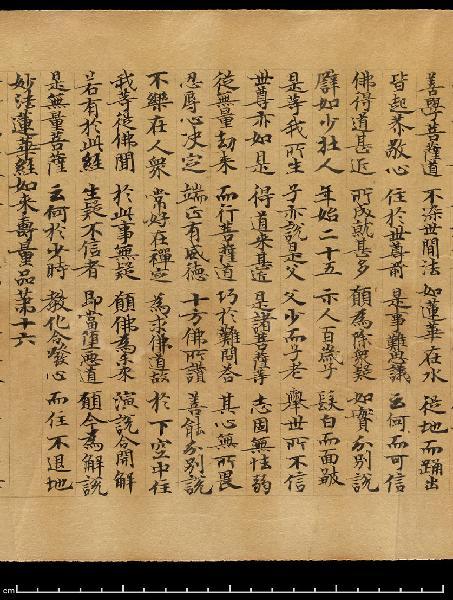 善學菩薩道 不染世間法 如蓮華在水 從地而踊出
皆起恭敬心 住於世尊前 是事難思議 云何而可信
佛得道甚近 所成就甚多 願為除衆疑 如實分別說
譬如少壯人 年始二十五 示人百歲子 髮白而面皺
是等我所生 子亦說是父 父少而子老 舉世所不信
世尊亦如是 得道來甚近 是諸菩薩等 志固無怯弱
從無量劫來 而行菩薩道 巧於難問答 其心無所畏
忍辱心決定 端正有威德 十方佛所讚 善能分別說
不樂在人衆 常好在禪定 為求佛道故 於下空中住
我等從佛聞 於此事無疑 願佛為未來 演說令開解
若有於此經 生疑不信者 即當墮惡道 願今為解說
是無量菩薩 云何於少時 教化令發心 而住不退地
妙法蓮華經如來壽量品第十六
cm